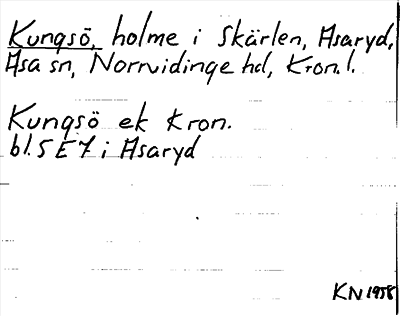 Kungsö, holme i Skärlen, Asaryd,
Asa sn, Norrvidinge hd, Kron. l.
Kungsö ek Kron.
bl. 5 E 7 i Asaryd
KN 1958